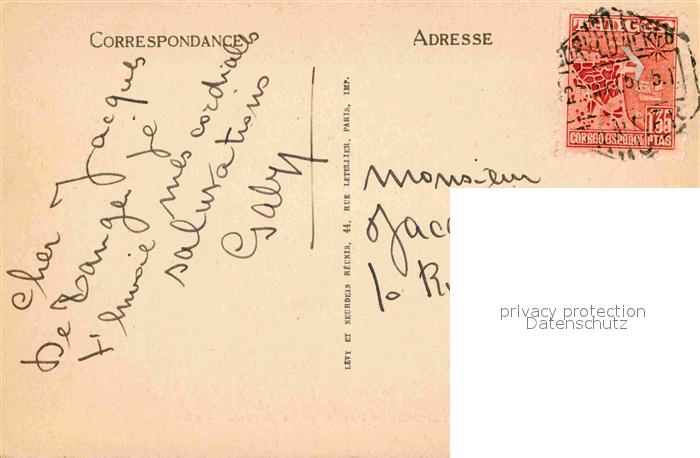 CORRESPONDANCE
Cher Jacques
De Tanger je
t'envoie mes cordiales
salutations
Gaby
LÉVY ET NEURDEIN RÉUNIS, 44, RUE LETELLIER, PARIS, IMP.
ADRESSE
CORREO ESPAÑOL
1'35 PTAS
Monsieur
Jacq
R
privacy protection
Datenschutz